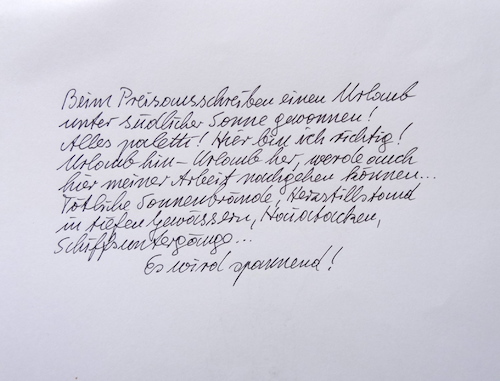 Beim Preisausschreiben einen Urlaub
unter südlicher Sonne gewonnen!
Alles paletti! Hier bin ich richtig!
Urlaub hin – Urlaub her, werde auch
hier meiner Arbeit nachgehen können...
Tötliche Sonnenbrände, Herzstillstand
in tiefen Gewässern, Haiatacken,
Schiffsuntergänge...
Es wird spannend!